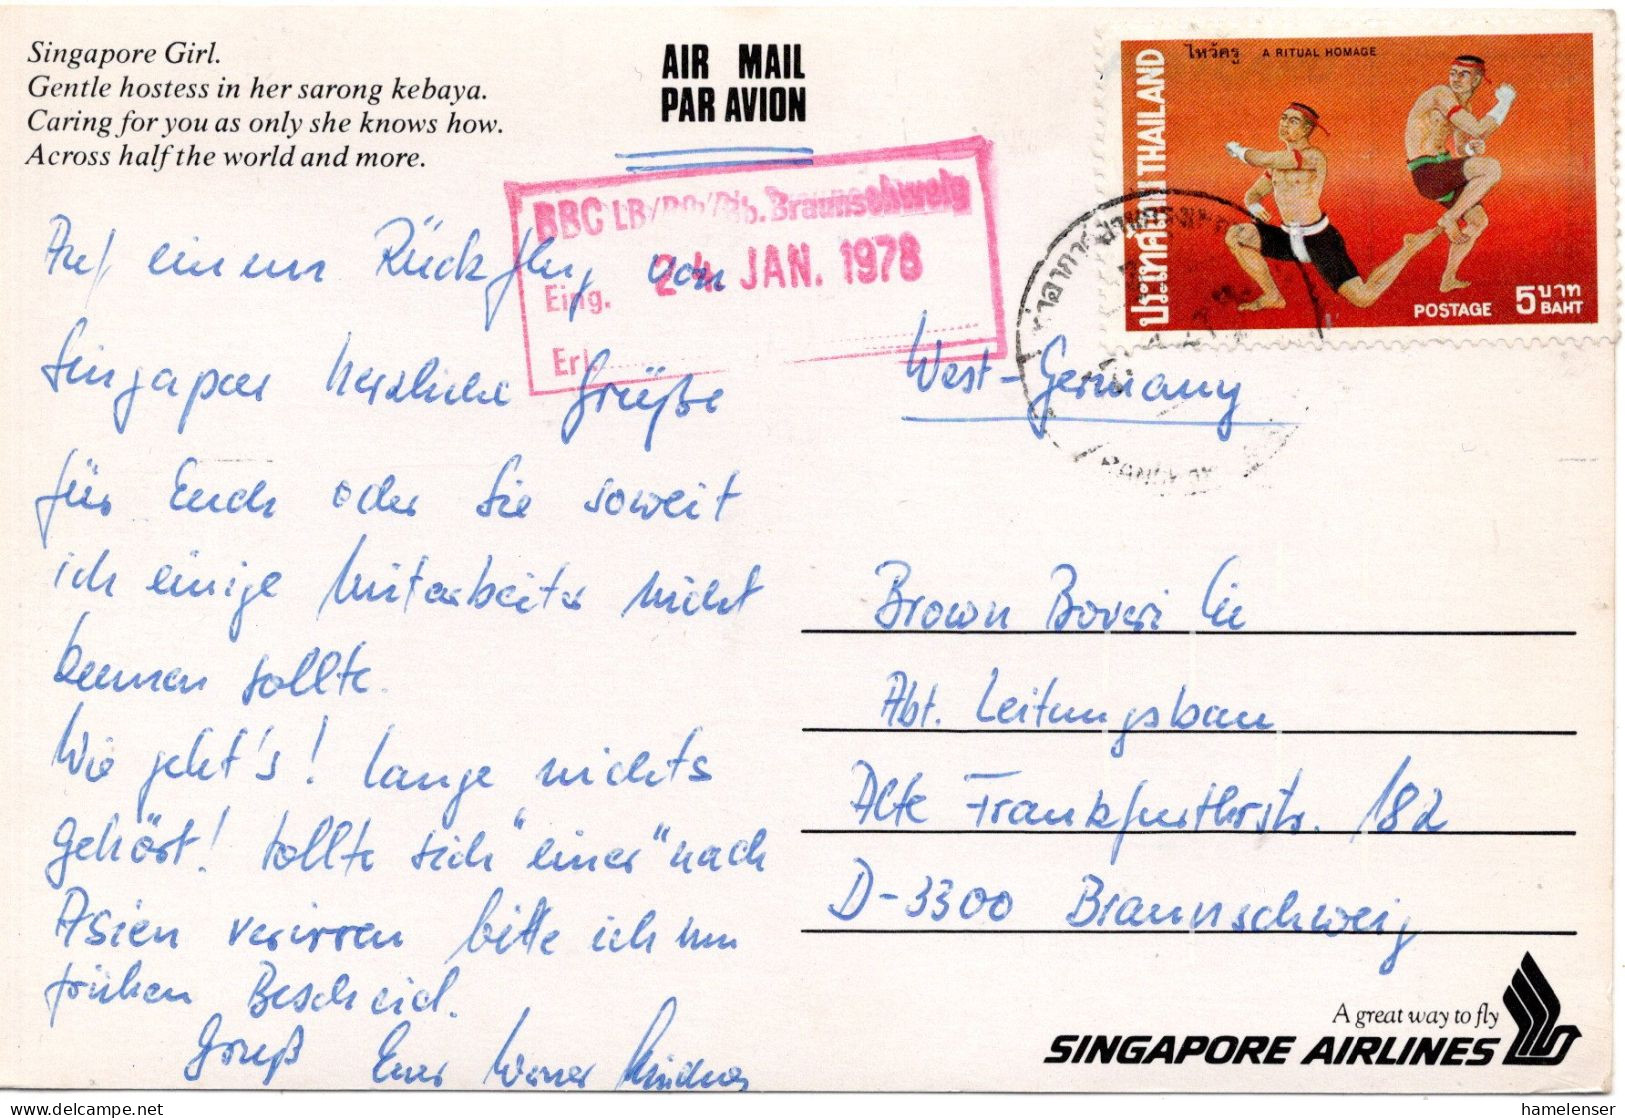 Singapore Girl.
Gentle hostess in her sarong kebaya.
Caring for you as only she knows how.
Across half the world and more.
AIR MAIL
PAR AVION
ไหว้ครู A RITUAL HOMAGE
ประเทศไทย THAILAND
POSTAGE 5 บาท
BAHT
BBC LB/ Braunschweig
24. JAN. 1978
Eing.
Erl.
BANGKOK
Auf einem Rückflug von
Singapore herzliche Grüße
für Euch oder Sie soweit
ich einige Mitarbeiter nicht
kennen sollte.
Wie geht's! Lange nichts
gehört! Sollte sich "einer" nach
Asien verirren bitte ich um
frühen Bescheid.
Gruß Euer Werner
West-Germany
Brown Boveri Cie
Abt. Leitungsbau
Alte Frankfurthrstr. 182
D-3300 Braunschweig
A great way to fly
SINGAPORE AIRLINES
hamelenser